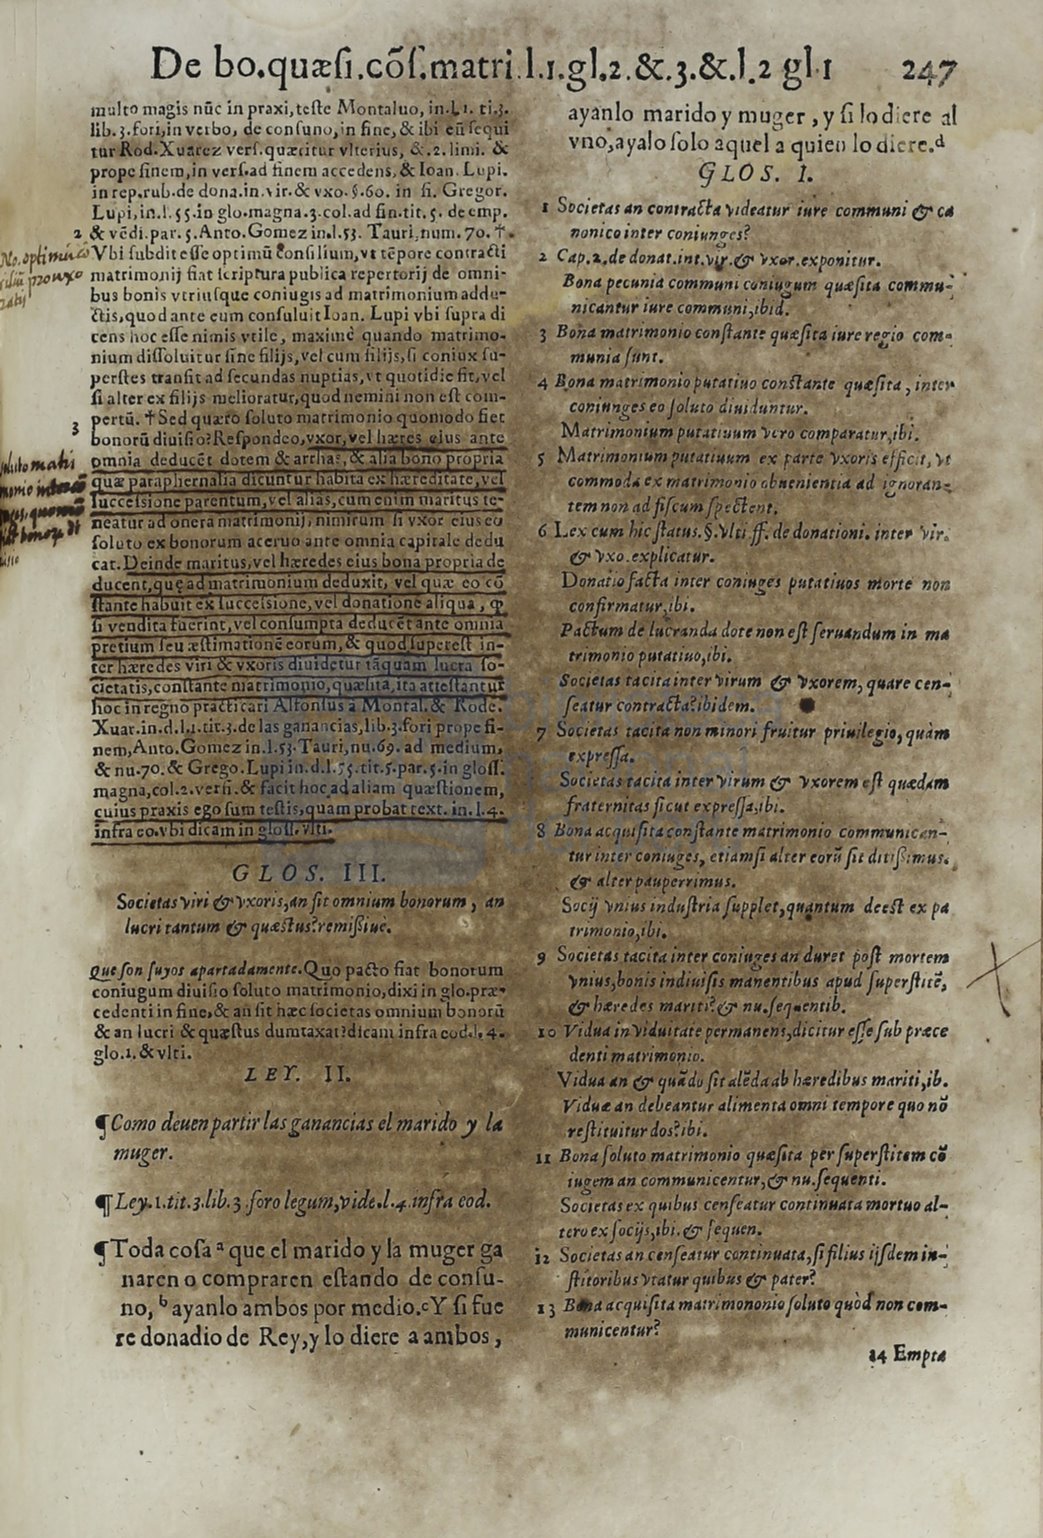 De bo.quæsi.cõs.matri.l.1.gl.2.&.3.&.l.2 gl.1 247
multo magis nũc in praxi,teste Montaluo, in.l.1. ti.3.
lib.3.fori,in verbo, de consuno,in fine,& ibi eũ sequi
tur Rod.Xuarez vers.quæritur vlterius, &.2.limi. &
prope finem,in vers.ad finem accedens,& Ioan. Lupi.
in rep.rub.de dona.in.vir.& vxo.§.60. in fi. Gregor.
Lupi,in.l.55.in glo.magna.3.col.ad fin.tit.5. de emp.
2 & vẽdi.par.5.Anto.Gomez in.l.53. Tauri,num.70.†.
Vbi subdit esse optimũ consilium,vt tẽpore contracti
matrimonij fiat scriptura publica repertorij de omni-
bus bonis vtriusque coniugis ad matrimonium addu-
ctis,quod ante eum consuluit Ioan. Lupi vbi supra di
cens hoc esse nimis vtile, maximè quando matrimo-
nium dissoluitur sine filijs,vel cum filijs,si coniux su-
perstes transit ad secundas nuptias,vt quotidie fit,vel
si alter ex filijs melioratur,quod nemini non est com-
pertũ. †Sed quæro soluto matrimonio quomodo fiet
3 bonorũ diuisio?Respondeo,vxor,vel hæres eius ante
omnia deducẽt dotem & arrhas,& alia bono propria
quæ paraphernalia dicuntur habita ex hæreditate,vel
successione parentum,vel alias,cum enim maritus te-
neatur ad onera matrimonij, nimirum si vxor eius eo
soluto ex bonorum aceruo ante omnia capitale dedu
cat.Deinde maritus,vel hæredes eius bona propria de
ducent,quę ad matrimonium deduxit, vel quæ eo cõ
stante habuit ex successione,vel donatione aliqua, ꝙ
si vendita fuerint,vel consumpta deducẽt ante omnia
pretium seu æstimationẽ eorum,& quod superest in-
ter hæredes viri & vxoris diuidetur tãquam lucra so-
cietatis,constante matrimonio,quæsita,ita attestantur
hoc in regno practicari Alfonsus à Montal.& Rode.
Xuar.in.d.l.1.tit.3.de las ganancias,lib.3.fori prope fi-
nem,Anto.Gomez in.l.53.Tauri,nu.69. ad medium,
& nu.70.& Grego.Lupi in.d.l.55.tit.5.par.5.in gloss.
magna,col.2.versi.& facit hoc ad aliam quæstionem,
cuius praxis ego sum testis,quam probat text. in.l.4.
infra eo.vbi dicam in gloss.vlti.
GLOS. III.
Societas viri & vxoris,an sit omnium bonorum, an
lucri tantum & quæstus?remissiuè.
Que son suyos apartadamente.Quo pacto fiat bonorum
coniugum diuisio soluto matrimonio,dixi in glo.præ-
cedenti in fine,& an sit hæc societas omnium bonorũ
& an lucri & quæstus dumtaxat?dicam infra eod.l.4.
glo.1.& vlti.
LEY. II.
¶Como deuen partir las ganancias el marido y la
muger.
¶Ley.1.tit.3.lib.3.foro legum,vide.l.4.infra eod.
¶Toda cosa a que el marido y la muger ga
naren o compraren estando de consu-
no, b ayanlo ambos por medio.c Y si fue
re donadio de Rey,y lo diere a ambos,
ayanlo marido y muger, y si lo diere al
vno,ayalo solo aquel a quien lo diere.d
GLOS. I.
1 Societas an contracta videatur iure communi & ca
nonico inter coniunges?
2 Cap.2.de donat.int.vir.& vxor.exponitur.
Bona pecunia communi coniugum quæsita commu-
nicantur iure communi,ibid.
3 Bona matrimonio constante quæsita iure regio com-
munia sunt.
4 Bona matrimonio putatiuo constante quæsita, inter
coniunges eo soluto diuiduntur.
Matrimonium putatiuum vero comparatur,ibi.
5 Matrimonium putatiuum ex parte vxoris efficit, vt
commoda ex matrimonio obuenientia ad ignoran-
tem non ad fiscum spectent.
6 Lex cum hic status.§.vlti ff. de donationi. inter vir.
& vxo.explicatur.
Donatio facta inter coniuges putatiuos morte non
confirmatur,ibi.
Pactum de lucranda dote non est seruandum in ma
trimonio putatiuo,ibi.
Societas tacita inter virum & vxorem, quare cen-
seatur contracta?ibidem.
7 Societas tacita non minori fruitur priuilegio, quàm
expressa.
Societas tacita inter virum & vxorem est quædam
fraternitas sicut expressa,ibi.
8 Bona acquisita constante matrimonio communican-
tur inter coniuges, etiamsi alter eorũ sit ditissimus.
& alter pauperrimus.
Socij vnius industria supplet,quantum deest ex pa
trimonio,ibi.
9 Societas tacita inter coniuges an duret post mortem
vnius,bonis indiuisis manentibus apud superstitẽ,
& hæredes mariti?& nu.sequentib.
10 Vidua in viduitate permanens,dicitur esse sub præce
denti matrimonio.
Vidua an & quãdo sit alẽda ab hæredibus mariti,ib.
Viduæ an debeantur alimenta omni tempore quo nõ
restituitur dos?ibi.
11 Bona soluto matrimonio quæsita per superstitem cõ
iugem an communicentur,& nu.sequenti.
Societas ex quibus censeatur continuata mortuo al-
tero ex socijs,ibi.& sequen.
12 Societas an censeatur continuata,si filius ijsdem in-
stitoribus vtatur quibus & pater?
13 Bona acquisita matrimononio soluto quòd non com-
municentur?
14 Empta